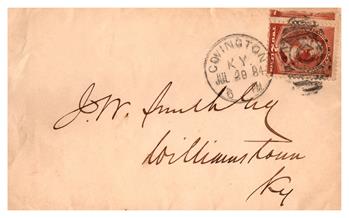 COVINGTON
KY.
JUL 29 84
6 PM
J. W. Smith Esq
Williamstown
Ky